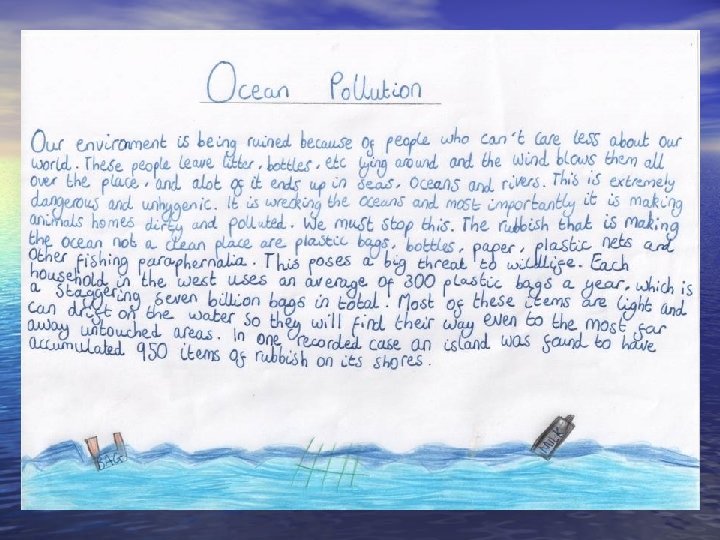 Ocean Pollution
Our environment is being ruined because of people who can't care less about our
world. These people leave litter, bottles, etc lying around and the wind blows them all
over the place, and alot of it ends up in seas, oceans and rivers. This is extremely
dangerous and unhygenic. It is wrecking the oceans and most importantly it is making
animals homes dirty and polluted. We must stop this. The rubbish that is making
the ocean not a clean place are plastic bags, bottles, paper, plastic nets and
other fishing paraphernalia. This poses a big threat to wildlife. Each
household in the west uses an average of 300 plastic bags a year, which is
a staggering seven billion bags in total! Most of these items are light and
can drift on the water so they will find their way even to the most far
away untouched areas. In one recorded case an island was found to have
accumulated 950 items of rubbish on its shores.
BAG
MILK